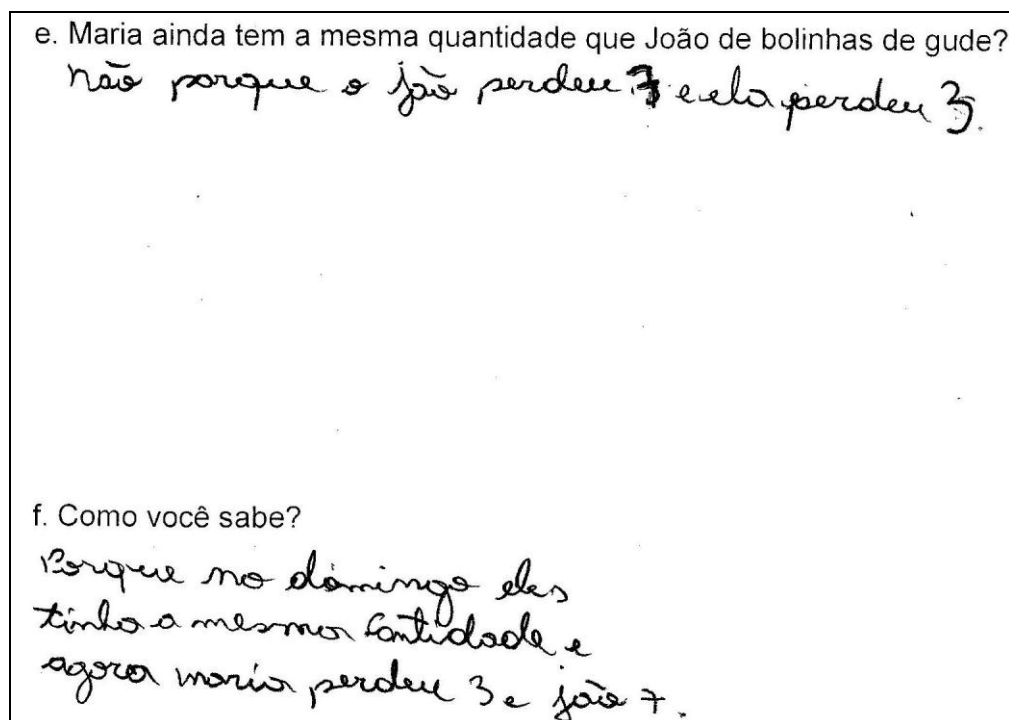 e. Maria ainda tem a mesma quantidade que João de bolinhas de gude?
não porque o joão perdeu 7 e ela perdeu 3.
f. Como você sabe?
Porque no domingo eles
tinha a mesma cantidade e
agora maria perdeu 3 e joão 7.